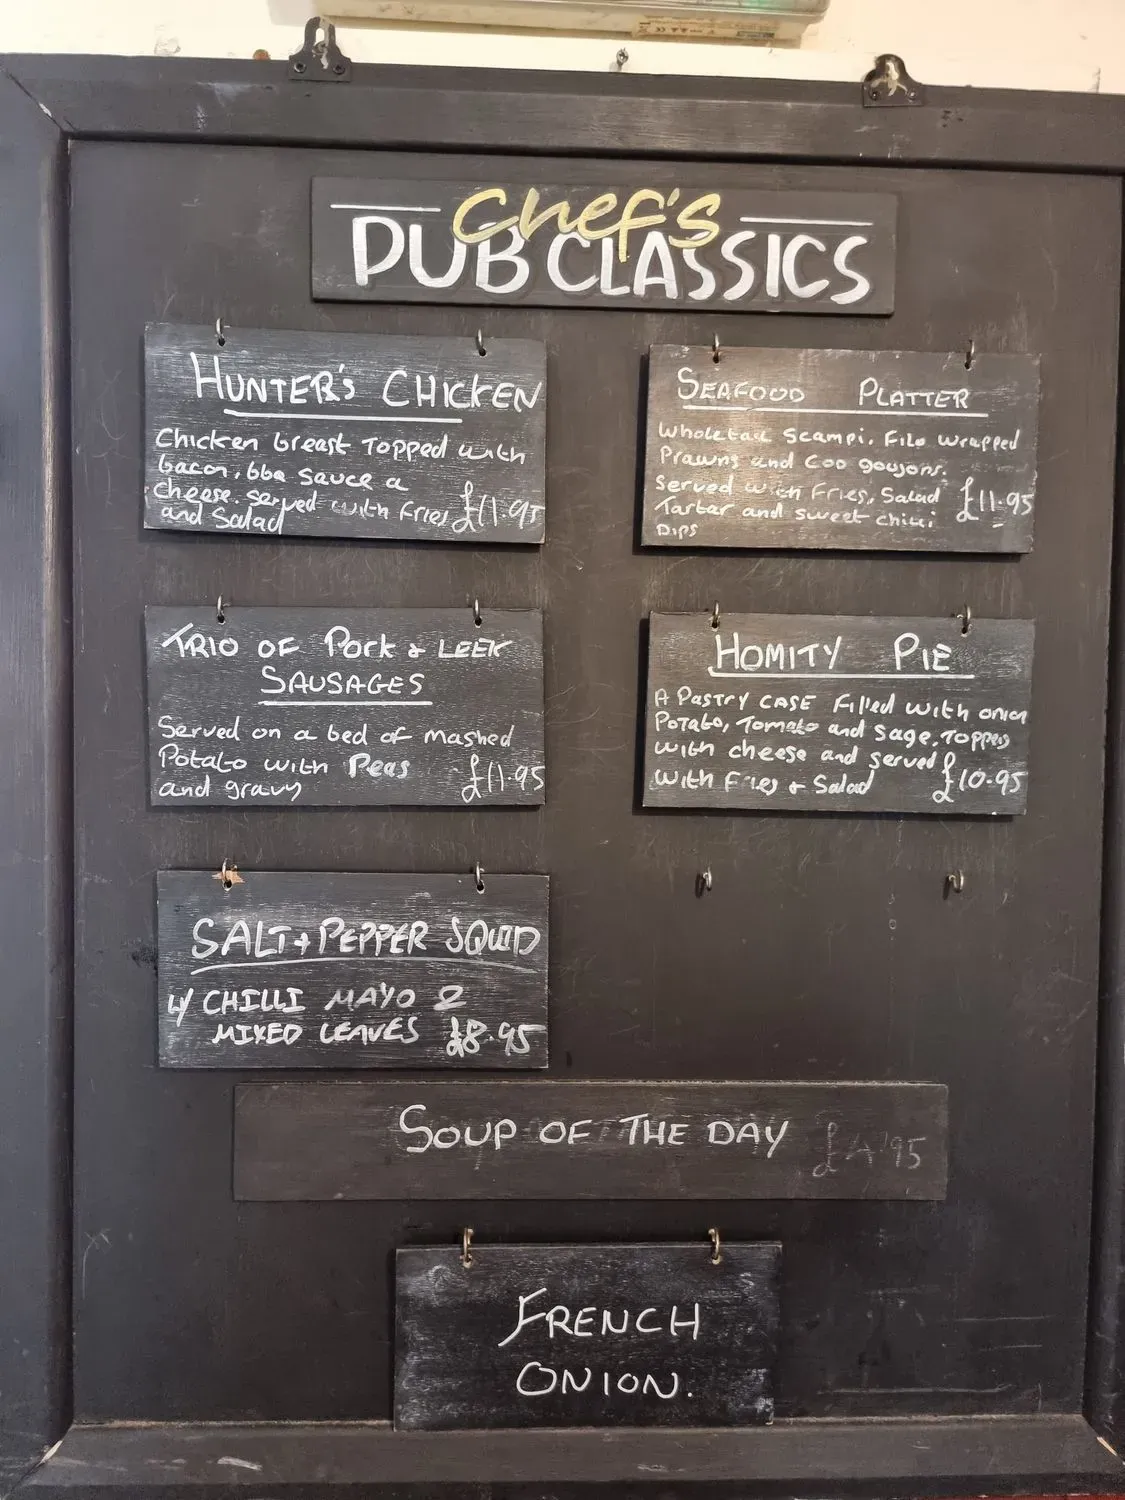 Chef's
PUB CLASSICS
HUNTER'S CHICKEN
Chicken breast Topped with
bacon, bbq sauce &
cheese. served with Fries £11.95
and Salad
SEAFOOD PLATTER
Wholetail Scampi, Filo wrapped
Prawns and Cod goujons.
Served with Fries, Salad £11.95
Tartar and sweet chilli
Dips
TRIO OF Pork & LEEK
SAUSAGES
Served on a bed of mashed
Potato with Peas £11.95
and gravy
HOMITY PIE
A Pastry CASE Filled with onion
Potato, Tomato and sage. Topped
with cheese and served
with Fries & Salad £10.95
SALT + PEPPER SQUID
W/ CHILLI MAYO &
MIXED LEAVES £8.95
SOUP OF THE DAY £4.95
FRENCH
ONION.